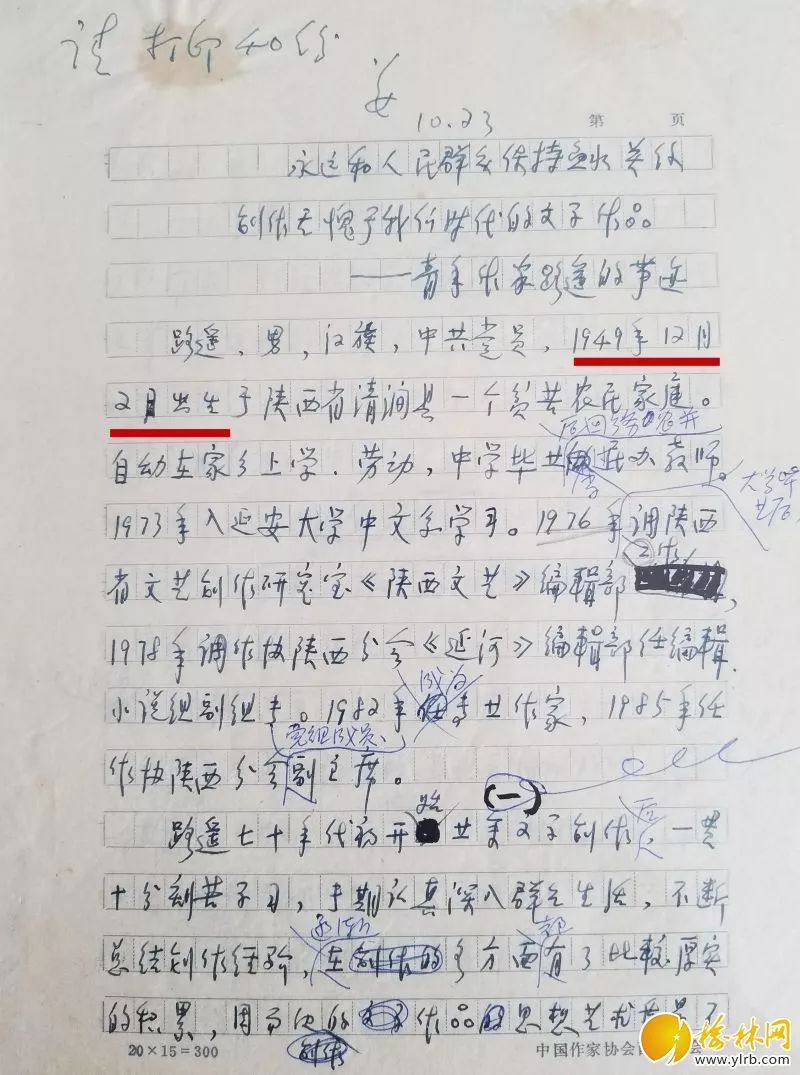 请打印40份
姜
10.23
第 页
永远和人民群众保持血肉关系
创作无愧于我们时代的文学作品
——青年作家路遥的事迹
路遥，男，汉族，中共党员，1949年12月
2日出生于陕西省清涧县一个贫苦农民家庭。
后回乡务农并
自幼在家乡上学、劳动，中学毕业 民办教师。
大学毕业后，
1973年入延安大学中文系学习。1976年调陕西
工作
省文艺创作研究室《陕西文艺》编辑部，
1978年调作协陕西分会《延河》编辑部任编辑、
成为
小说组副组长。1982年任专业作家，1985年任
党组成员、
作协陕西分会副主席。
(一)
始 后
路遥七十年代初开 业余文学创作 一贯
十分刻苦学习，长期认真深入群众生活，不断
逐渐 都
总结创作经验，在创作的多方面有了比较厚实
的积累，因而他的 作品的思想艺术质量不
创作
20×15=300
中国作家协会 会
榆林网
www.ylrb.com